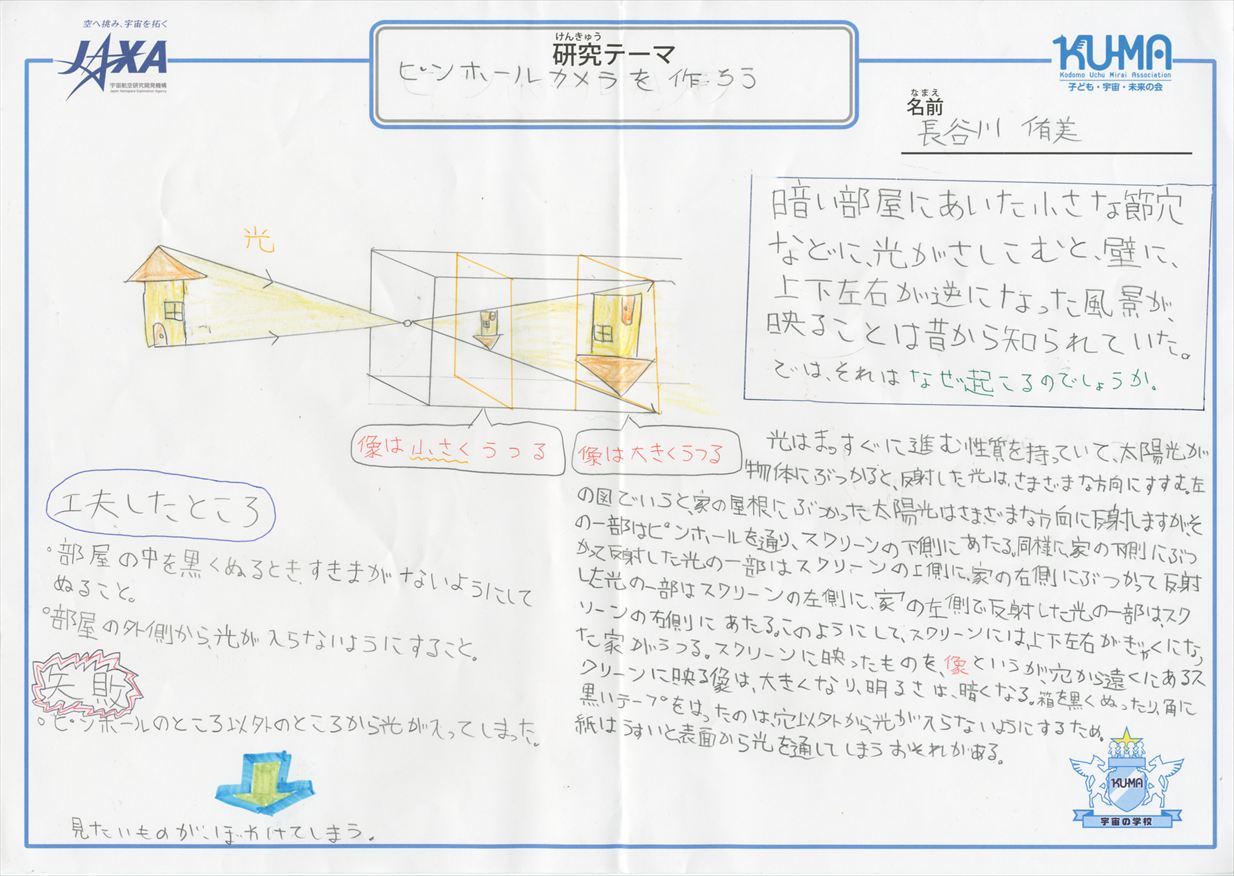 空へ挑み、宇宙を拓く
JAXA
宇宙航空研究開発機構
Japan Aerospace Exploration Agency
けんきゅう
研究テーマ
ピンホールカメラを作ろう
KUMA
Kodomo Uchu Mirai Association
子ども・宇宙・未来の会
なまえ
名前
長谷川 侑美
光
像は小さくうつる
像は大きくうつる
暗い部屋にあいた小さな節穴
などに、光がさしこむと、壁に、
上下左右が逆になった風景が、
映ることは昔から知られていた。
では、それはなぜ起こるのでしょうか。
光はまっすぐに進む性質を持っていて、太陽光が
物体にぶつかると、反射した光は、さまざまな方向にすすむ。左
の図でいうと、家の屋根にぶつかった太陽光はさまざまな方向に反射しますが、そ
の一部はピンホールを通り、スクリーンの下側にあたる。同様に家の下側にぶつ
かって反射した光の一部はスクリーンの上側に、家の右側にぶつかって反射
した光の一部はスクリーンの左側に、家の左側で反射した光の一部はスク
リーンの右側にあたる。このようにして、スクリーンには、上下左右がぎゃくになっ
た家がうつる。スクリーンに映ったものを、像というが、穴から遠くにあるス
クリーンに映る像は、大きくなり、明るさは、暗くなる。箱を黒くぬったり、角に
黒いテープをはったのは、穴以外から、光が入らないようにするため。
紙はうすいと、表面から光を通してしまうおそれがある。
工夫したところ
・部屋の中を黒くぬるとき、すきまがないようにして
ぬること。
・部屋の外側から、光が入らないようにすること。
失敗
・ピンホールのところ以外のところから光が入ってしまった。
見たいものが、ぼやけてしまう。
KUMA
宇宙の学校